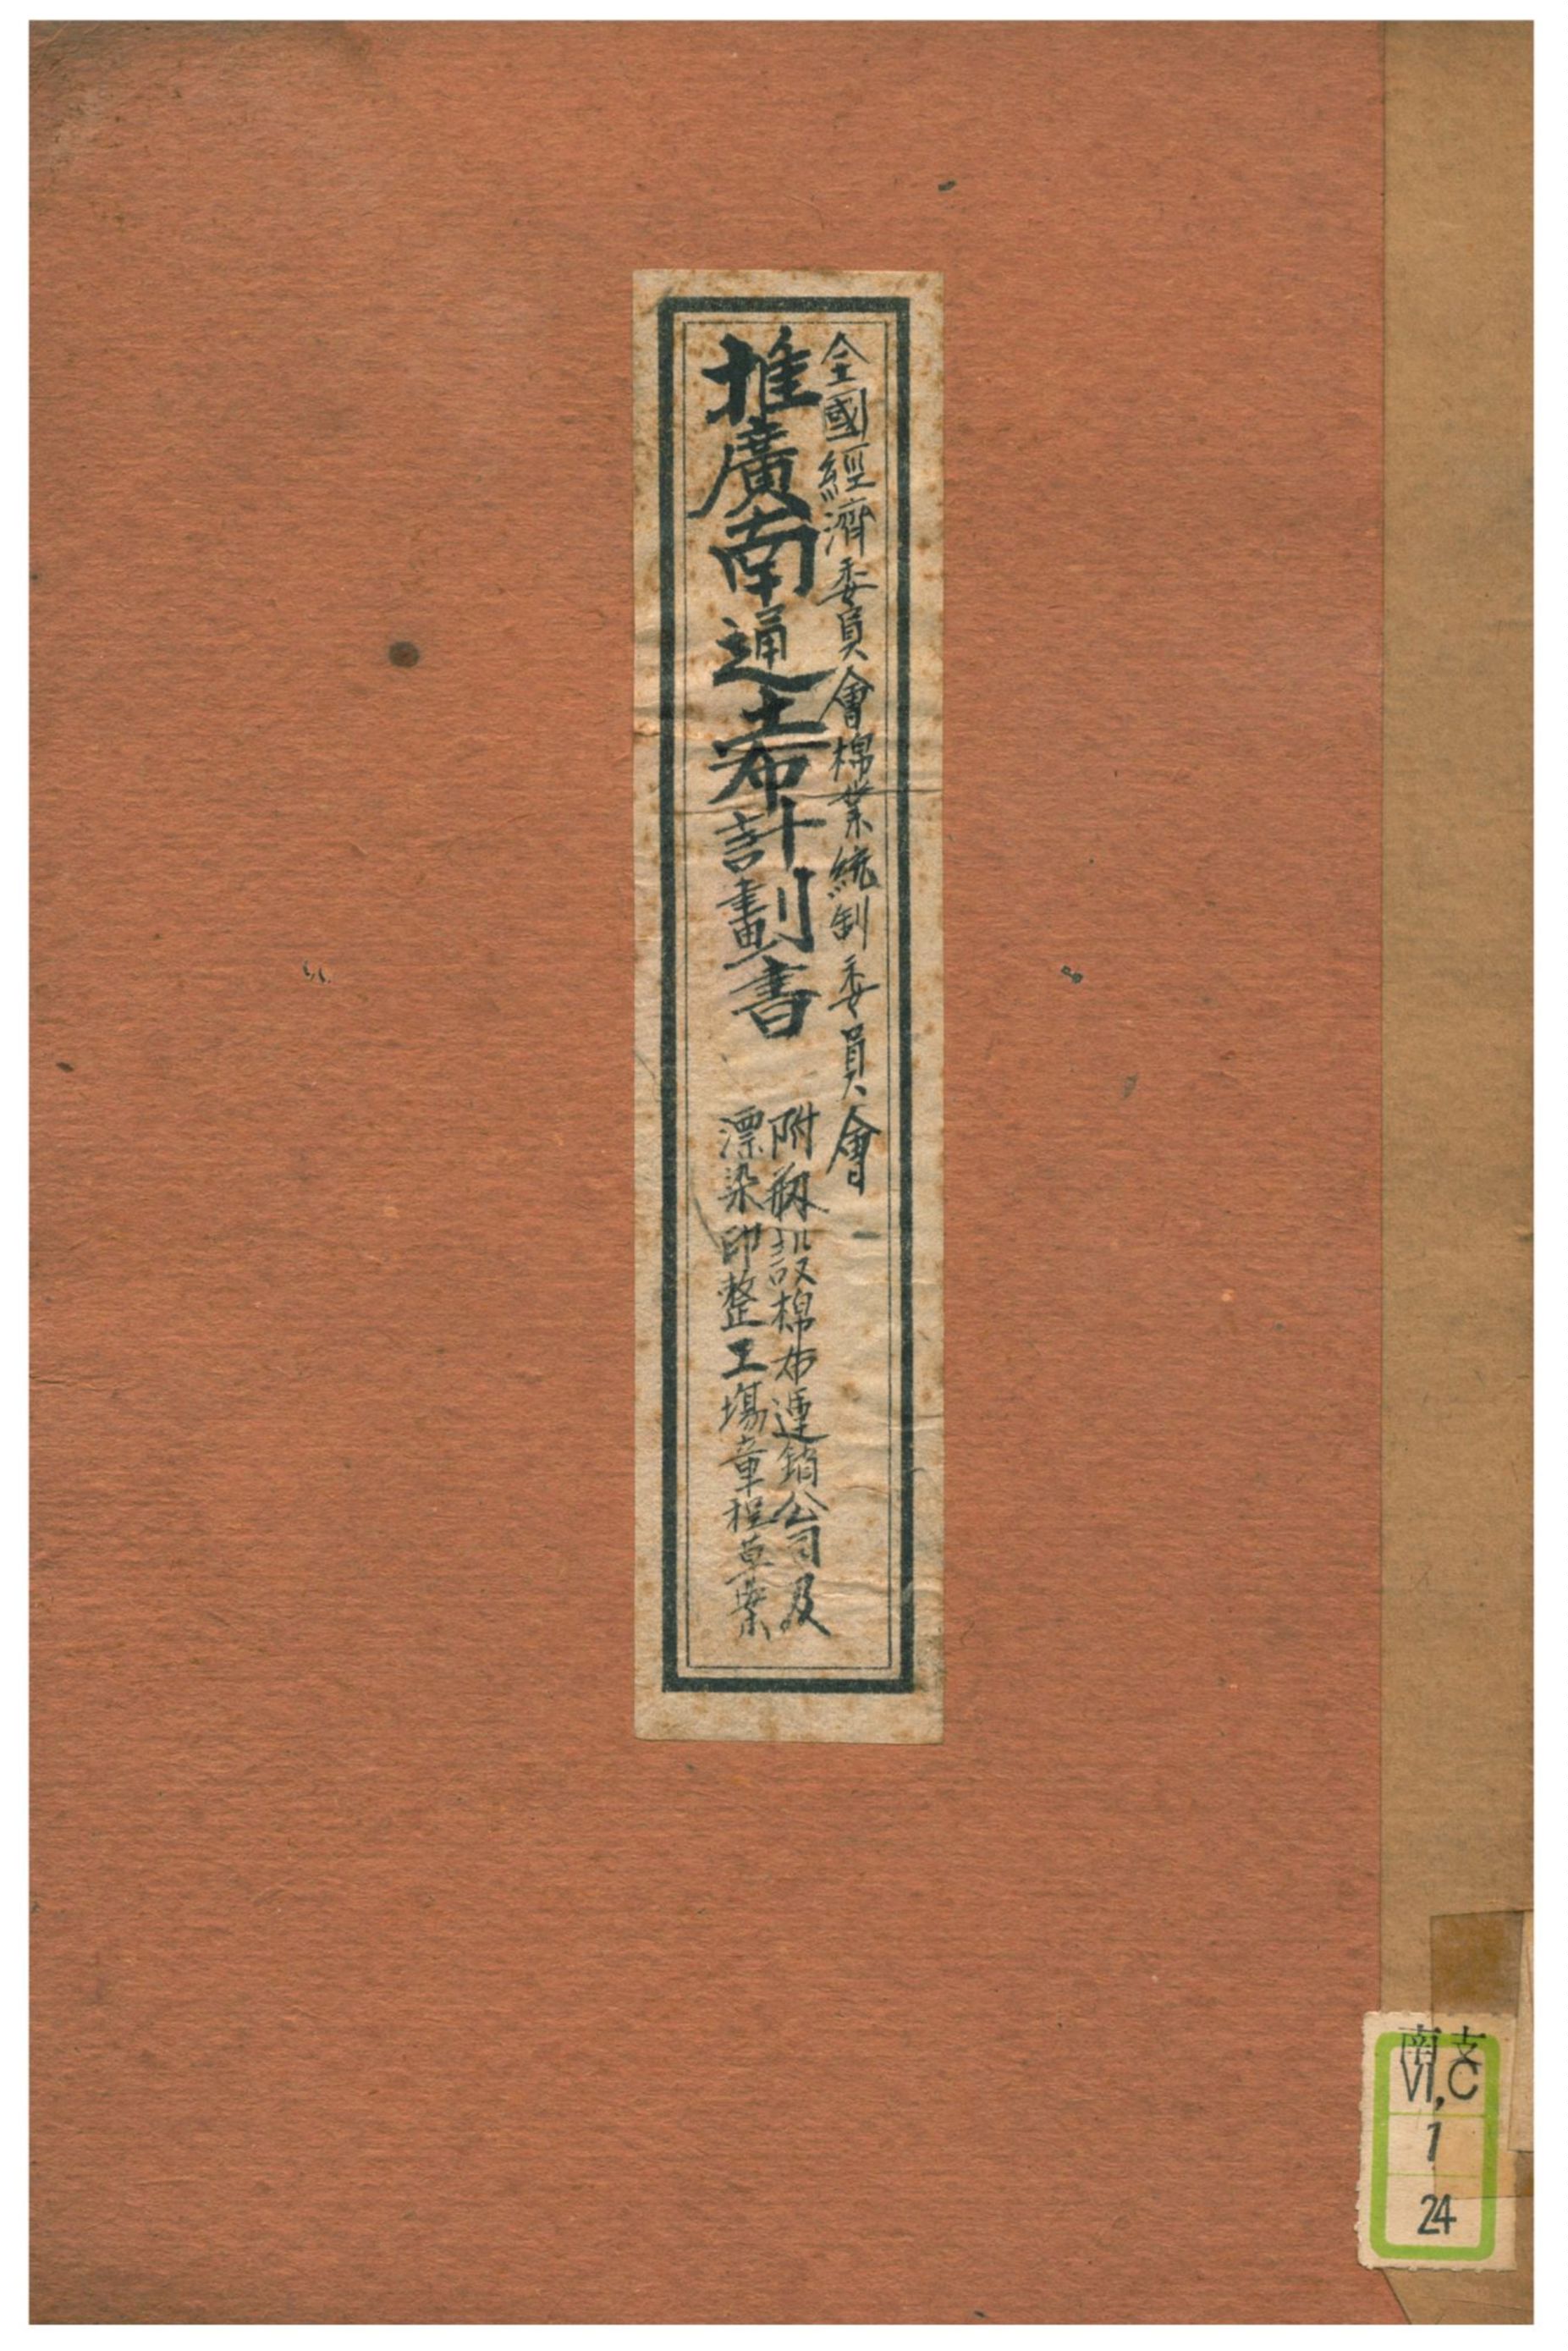 全國經濟委員會棉業統制委員會
推廣南通土布計劃書
附剏設棉布運銷公司及
漂染印整工塲章程草案
南支
VI,C
1
24